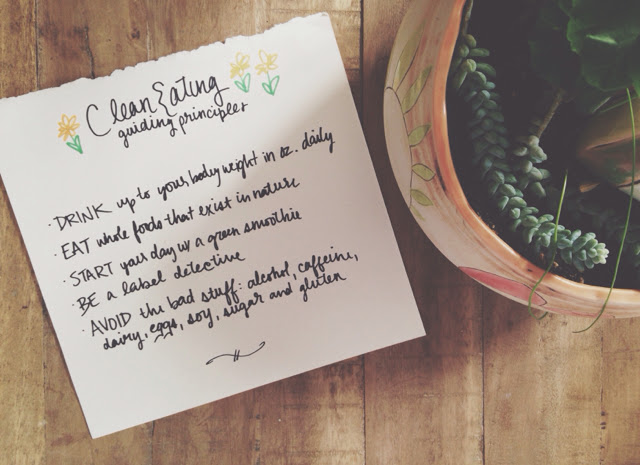 Clean Eating
guiding principles
· DRINK up to your body weight in oz. daily
· EAT whole foods that exist in nature
· START your day w/ a green smoothie
· BE a label detective
· AVOID the bad stuff: alcohol, caffeine,
dairy, eggs, soy, sugar and gluten